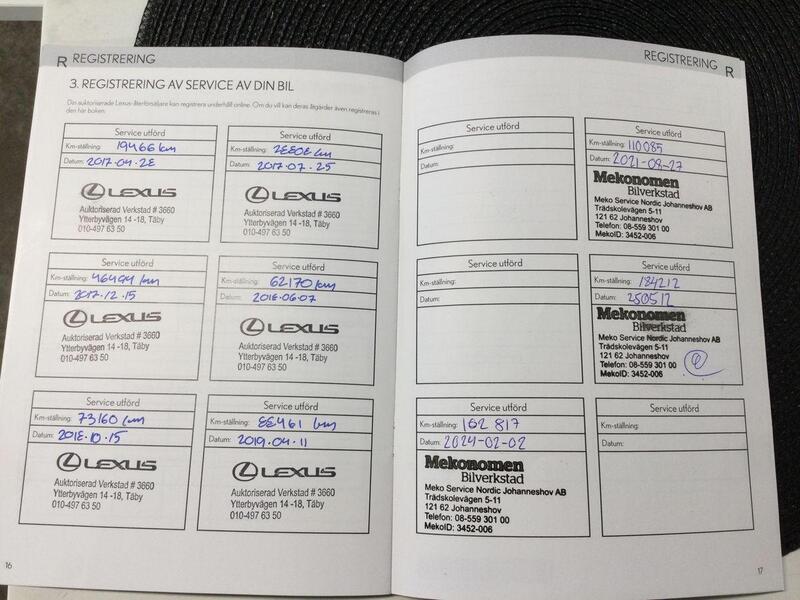 R REGISTRERING
3. REGISTRERING AV SERVICE AV DIN BIL
Din auktoriserade Lexus-återförsäljare kan registrera underhåll online. Om du vill kan deras åtgärder även registreras i
den här boken.
Service utförd
Km-ställning: 19466 km
Datum: 2017.04.28
LEXUS
Auktoriserad Verkstad # 3660
Ytterbyvägen 14 -18, Täby
010-497 63 50
Service utförd
Km-ställning: km
Datum: 2017.07.25
LEXUS
Auktoriserad Verkstad # 3660
Ytterbyvägen 14 -18, Täby
010-497 63 50
Service utförd
Km-ställning: 46494 km
Datum: 2017.12.15
LEXUS
Auktoriserad Verkstad # 3660
Ytterbyvägen 14 -18, Täby
010-497 63 50
Service utförd
Km-ställning: 62170 km
Datum: 2018.06.07
LEXUS
Auktoriserad Verkstad # 3660
Ytterbyvägen 14 -18, Täby
010-497 63 50
Service utförd
Km-ställning: 73160 km
Datum: 2018.10.15
LEXUS
Auktoriserad Verkstad # 3660
Ytterbyvägen 14 -18, Täby
010-497 63 50
Service utförd
Km-ställning: 88461 km
Datum: 2019.04.11
LEXUS
Auktoriserad Verkstad # 3660
Ytterbyvägen 14 -18, Täby
010-497 63 50
16
REGISTRERING R
Service utförd
Km-ställning:
Datum:
Service utförd
Km-ställning: 110085
Datum: 2021-08-27
Mekonomen
Bilverkstad
Meko Service Nordic Johanneshov AB
Trädskolevägen 5-11
121 62 Johanneshov
Telefon: 08-559 301 00
MekoID: 3452-006
Service utförd
Km-ställning:
Datum:
Service utförd
Km-ställning: 184212
Datum: 250512
Mekonomen
Bilverkstad
Meko Service Nordic Johanneshov AB
Trädskolevägen 5-11
121 62 Johanneshov
Telefon: 08-559 301 00
MekoID: 3452-006
Service utförd
Km-ställning: 162 817
Datum: 2024-02-02
Mekonomen
Bilverkstad
Meko Service Nordic Johanneshov AB
Trädskolevägen 5-11
121 62 Johanneshov
Telefon: 08-559 301 00
MekoID: 3452-006
Service utförd
Km-ställning:
Datum:
17